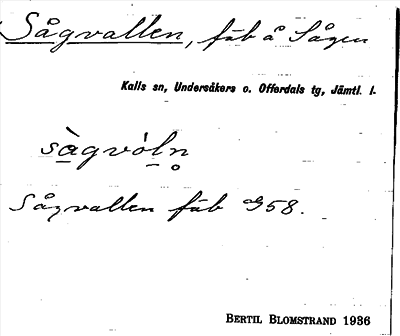 Sågvallen, fäb å Sågen
Kalls sn, Undersåkers o. Offerdals tg, Jämtl. l.
sàgvóln
Sågvallen fäb 958.
BERTIL BLOMSTRAND 1936